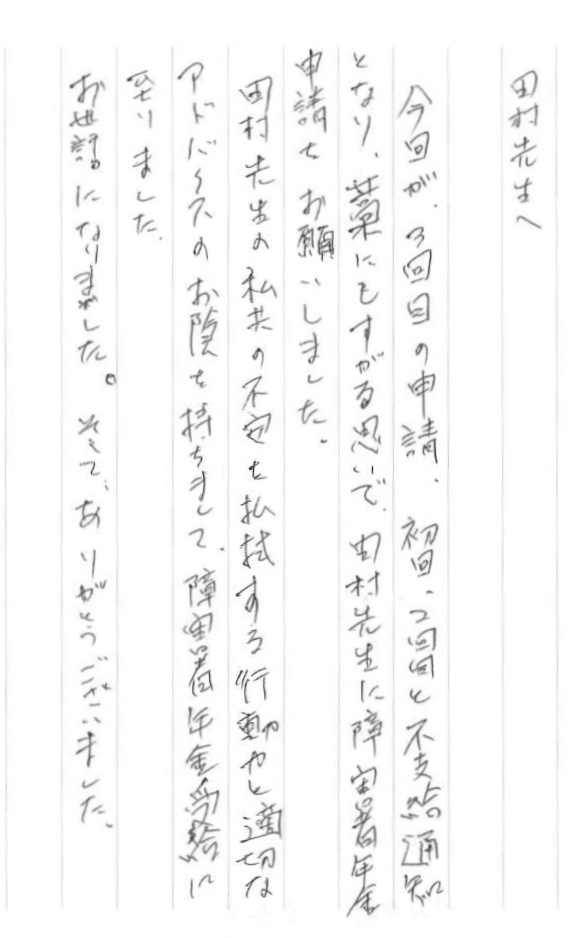 田村先生へ
今回が、3回目の申請、初回、2回目と不支給通知
となり、藁にもすがる思いで、田村先生に障害者年金
申請をお願いしました。
田村先生の私共の不安を払拭する行動力と適切な
アドバイスのお陰を持ちまして、障害者年金受給に
至りました。
お世話になりました。そして、ありがとうございました。